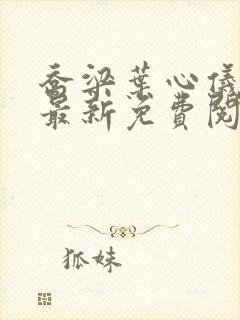 乔梁叶心仪
最新免费阅
狐妹